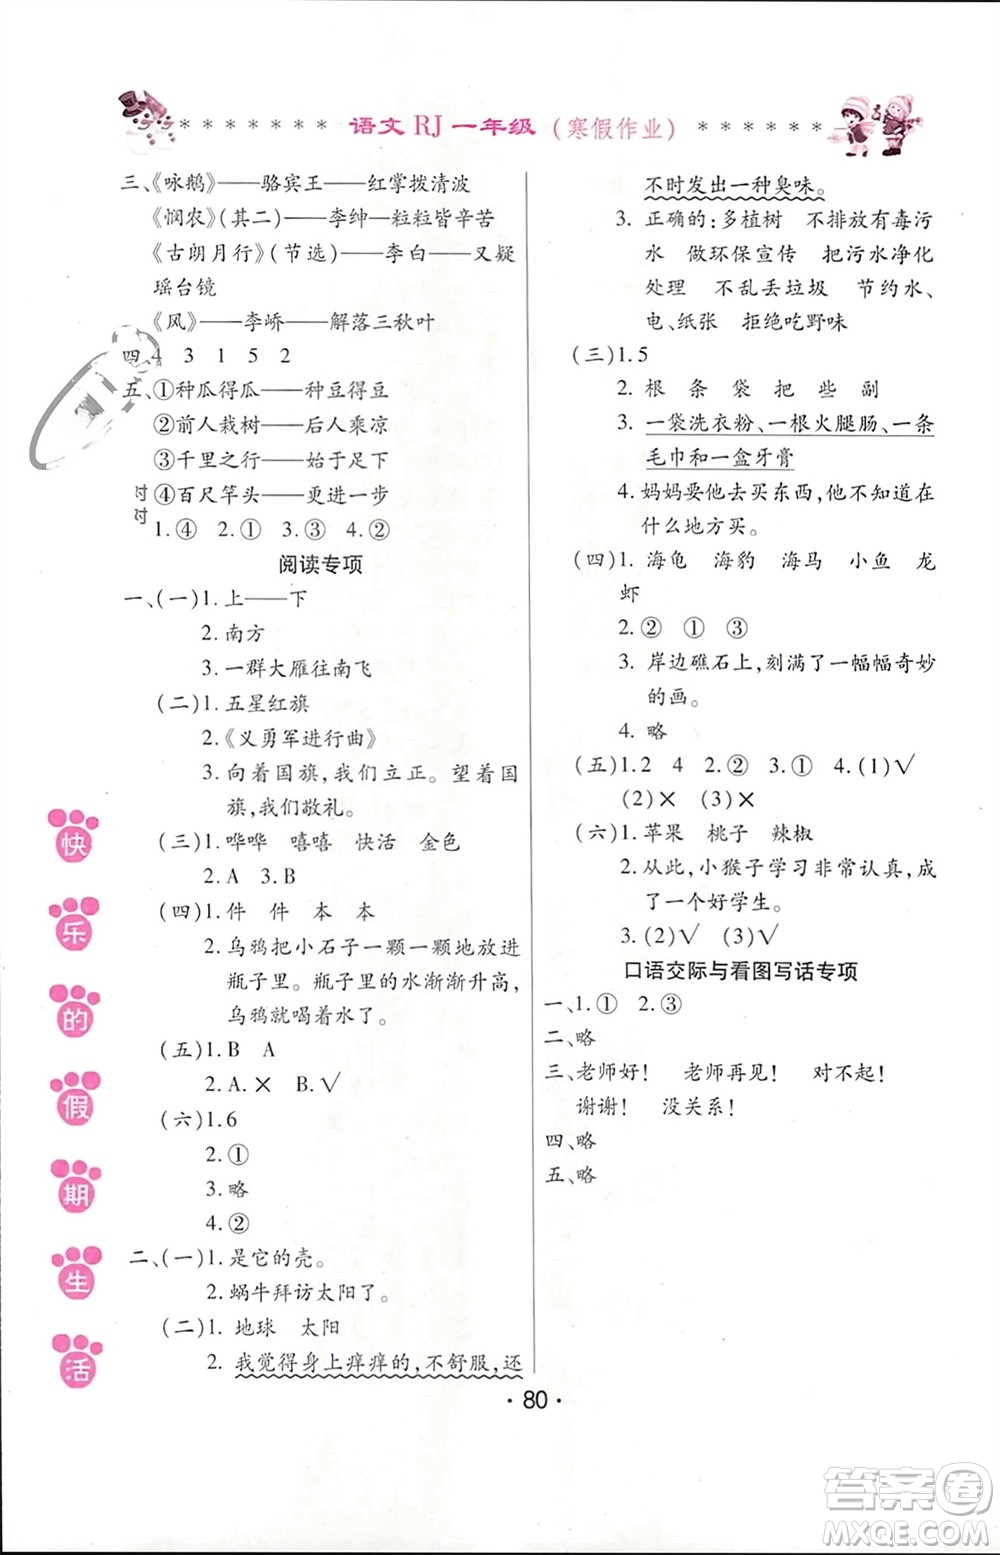 语文 RJ 一年级（寒假作业）
三、《咏鹅》——骆宾王——红掌拨清波
《悯农》(其二)——李绅—粒粒皆辛苦
《古朗月行》(节选)——李白——又疑
瑶台镜
《风》——李峤——解落三秋叶
四、4 3 1 5 2
五、①种瓜得瓜——种豆得豆
②前人栽树——后人乘凉
③千里之行——始于足下
④百尺竿头——更进一步
1.④ 2.① 3.③ 4.②
阅读专项
一、(一)1.上——下
2.南方
3.一群大雁往南飞
(二)1.五星红旗
2.《义勇军进行曲》
3.向着国旗,我们立正。望着国
旗,我们敬礼。
(三)1.哗哗 嘻嘻 快活 金色
2.A 3.B
(四)1.件 件 本 本
2.乌鸦把小石子一颗一颗地放进
瓶子里。瓶子里的水渐渐升高,
乌鸦就喝着水了。
(五)1.B A
2.A.× B.√
(六)1.6
2.①
3.略
4.②
二、(一)1.是它的壳。
2.蜗牛拜访太阳了。
(二)1. 地球 太阳
2. 我觉得身上痒痒的,不舒服,还
不时发出一种臭味。
3. 正确的:多植树 不排放有毒污
水 做环保宣传 把污水净化
处理 不乱丢垃圾 节约水、
电、纸张 拒绝吃野味
(三)1.5
2. 根 条 袋 把 些 副
3. 一袋洗衣粉、一根火腿肠、一条
毛巾和一盒牙膏
4.妈妈要他去买东西,他不知道在
什么地方买。
(四)1.海龟 海豹 海马 小鱼 龙
虾
2.② ① ③
3. 岸边礁石上,刻满了一幅幅奇妙
的画。
4. 略
(五)1.2 4 2.② 3.① 4.(1)√
(2)× (3)×
(六)1.苹果 桃子 辣椒
2.从此,小猴子学习非常认真,成
了一个好学生。
3.(2)√ (3)√
口语交际与看图写话专项
一、1.① 2.③
二、略
三、老师好! 老师再见! 对不起!
谢谢! 没关系!
四、略
五、略
快
乐
的
假
期
生
活
·80·
答案圈
MXQE.COM